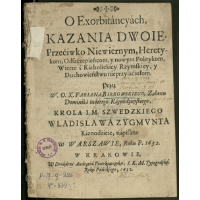 O Exorbitáncyách,
KAZANIA DWOIE,
Przećiwko Niewiernym, Herety-
kom, Odszczepieńcom, y nowym Politykom,
Wierze S. Kátholickiey Rzymskiey, y
Duchowieństwu nieprzyiaćiołom.
Przez
W. O. X. FABIANA BIRKOWSKIEGO, Zakonu
Dominiká świętego Káznodzieyskiego,
KROLA I. M. SZWEDZKIEGO
WŁADISŁAWA ZYGMUNTA
Káznodzieię, nápisáne
W WARSZAWIE, Roku P. 1632.
W KRAKOWIE,
W Drukárni Andrzeiá Piotrkowczyká, I. K. M. Typográphá.
Roku Páńskiego, 1632.